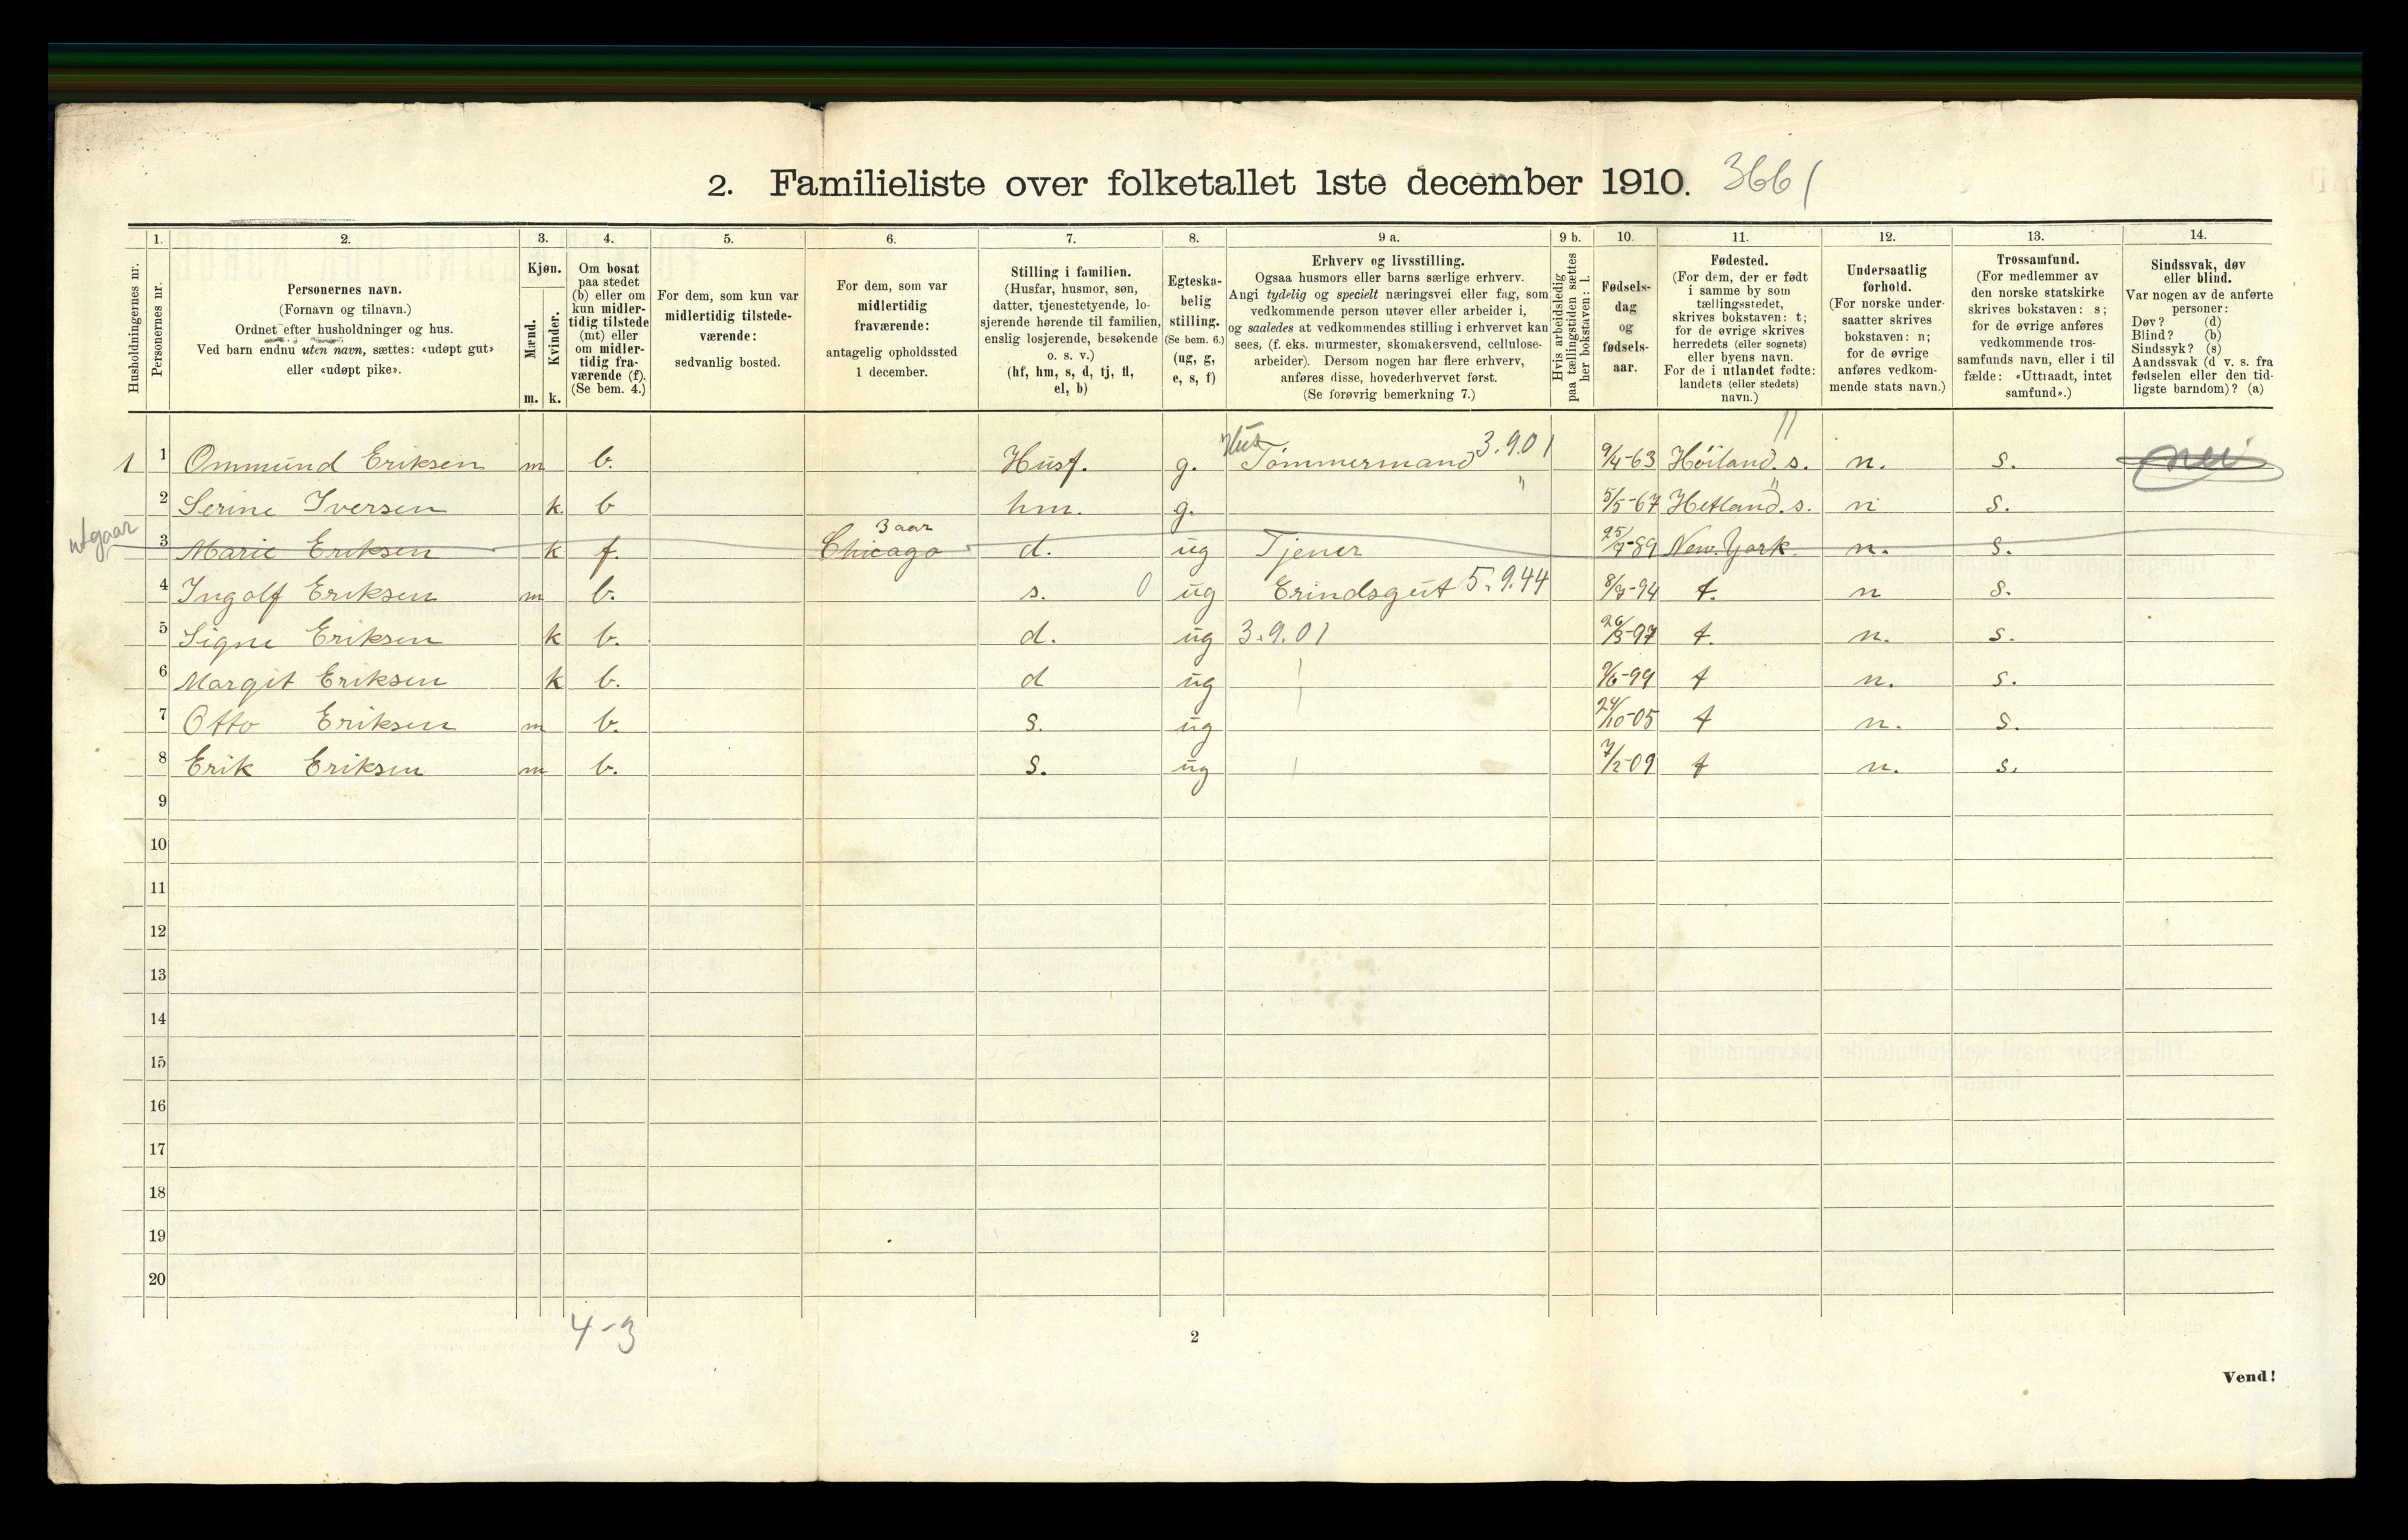 2. Familieliste over folketallet 1ste december 1910. 3661
1. 2. 3. 4. 5. 6. 7. 8. 9 a. 9 b. 10. 11. 12. 13. 14.
Husholdningernes nr.
Personernes nr.
Personernes navn.
(Fornavn og tilnavn.)
Ordnet efter husholdninger og hus.
Ved barn endnu uten navn, sættes: «udøpt gut»
eller «udøpt pike».
Kjøn.
Mænd.
Kvinder.
m. k.
Om bosat
paa stedet
(b) eller om
kun midler-
tidig tilstede
(mt) eller
om midler-
tidig fra-
værende (f).
(Se bem. 4.)
For dem, som kun var
midlertidig tilstede-
værende:
sedvanlig bosted.
For dem, som var
midlertidig
fraværende:
antagelig opholdssted
1 december.
Stilling i familien.
(Husfar, husmor, søn,
datter, tjenestetyende, lo-
sjerende hørende til familien,
enslig losjerende, besøkende
o. s. v.)
(hf, hm, s, d, tj, fl,
el, b)
Egteska-
belig
stilling.
(Se bem. 6.)
(ug, g,
e, s, f)
Erhverv og livsstilling.
Ogsaa husmors eller barns særlige erhverv.
Angi tydelig og specielt næringsvei eller fag, som
vedkommende person utøver eller arbeider i,
og saaledes at vedkommendes stilling i erhvervet kan
sees, (f. eks. murmester, skomakersvend, cellulose-
arbeider). Dersom nogen har flere erhverv,
anføres disse, hovederhvervet først.
(Se forøvrig bemerkning 7.)
Hvis arbeidsledig
paa tællingstiden sættes
her bokstaven: l.
Fødsels-
dag
og
fødsels-
aar.
Fødested.
(For dem, der er født
i samme by som
tællingsstedet,
skrives bokstaven: t;
for de øvrige skrives
herredets (eller sognets)
eller byens navn.
For de i utlandet fødte:
landets (eller stedets)
navn.)
Undersaatlig
forhold.
(For norske under-
saatter skrives
bokstaven: n;
for de øvrige
anføres vedkom-
mende stats navn.)
Trossamfund.
(For medlemmer av
den norske statskirke
skrives bokstaven: s;
for de øvrige anføres
vedkommende tros-
samfunds navn, eller i til
fælde: «Uttraadt, intet
samfund».)
Sindssvak, døv
eller blind.
Var nogen av de anførte
personer:
Døv? (d)
Blind? (b)
Sindssyk? (s)
Aandssvak (d v. s. fra
fødselen eller den tid-
ligste barndom)? (a)
1 1 Ommund Eriksen m b. Husf. g. Hus Tömmermand 3.9.01 9/4-63 Höiland. s. n. s. nei
2 Serine Iversen k. b hm. g. " 5/5-67 Hetland. s. n s.
utgaar 3 Marie Eriksen k f. Chicago 3 aar d. ug Tjener 25/7-89 New. York. n. s.
4 Ingolf Eriksen m b. s. 0 ug Erindsgut 5.9.44 8/9-94 t. n s.
5 Signe Eriksen k b. d. ug 3.9.01 26/3-97 t. n. s.
6 Margit Eriksen k b. d ug 9/6-99 t n. s.
7 Otto Eriksen m b. s. ug 24/10-05 t n. s.
8 Erik Eriksen m b. s. ug 7/2-09 t n. s.
9
10
11
12
13
14
15
16
17
18
19
20
4-3
2
Vend!